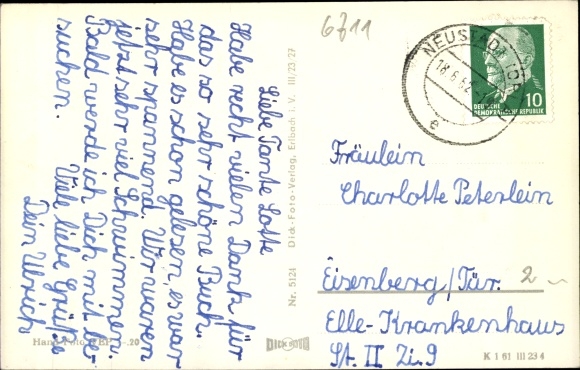 Liebe Tante Lotte
Habe recht vielen Dank für
das so sehr schöne Buch.
Habe es schon gelesen, es war
sehr spannend. Wir waren
jetzt sehr viel Schwimmen.
Bald werde ich Dich mit be-
suchen.
Viele liebe Grüße
Dein Ulrich
Nr. 5124 Dick-Foto-Verlag, Erlbach i. V. III/23/27
DICK FOTO
6711
NEUSTADT (OR
18.6.62
e
10
DEUTSCHE
DEMOKRATISCHE REPUBLIK
Fräulein
Charlotte Peterlein
Eisenberg/Tür. 2
Elle-Krankenhaus
St. II Zi. 9
K 1 61 III 23 4